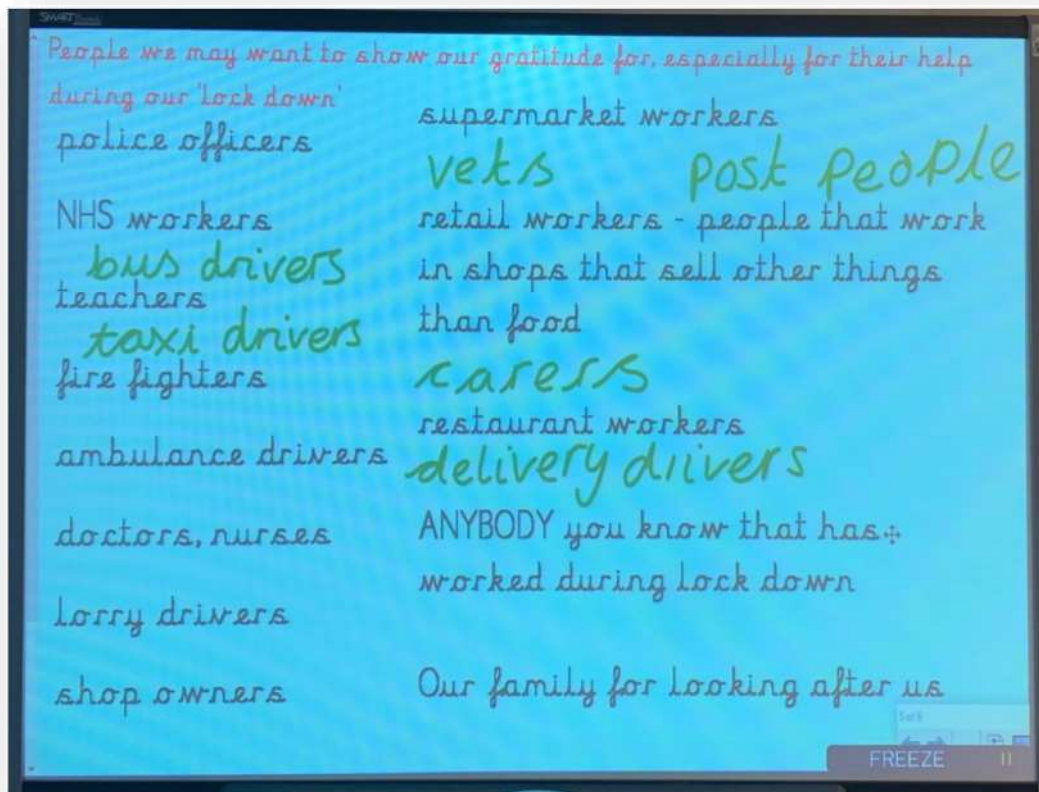 SMART
People we may want to show our gratitude for, especially for their help
during our 'lock down'
police officers
NHS workers
bus drivers
teachers
taxi drivers
fire fighters
ambulance drivers
doctors, nurses
lorry drivers
shop owners
supermarket workers
vets post people
retail workers - people that work
in shops that sell other things
than food
carers
restaurant workers
delivery drivers
ANYBODY you know that has
worked during lock down
Our family for looking after us
FREEZE